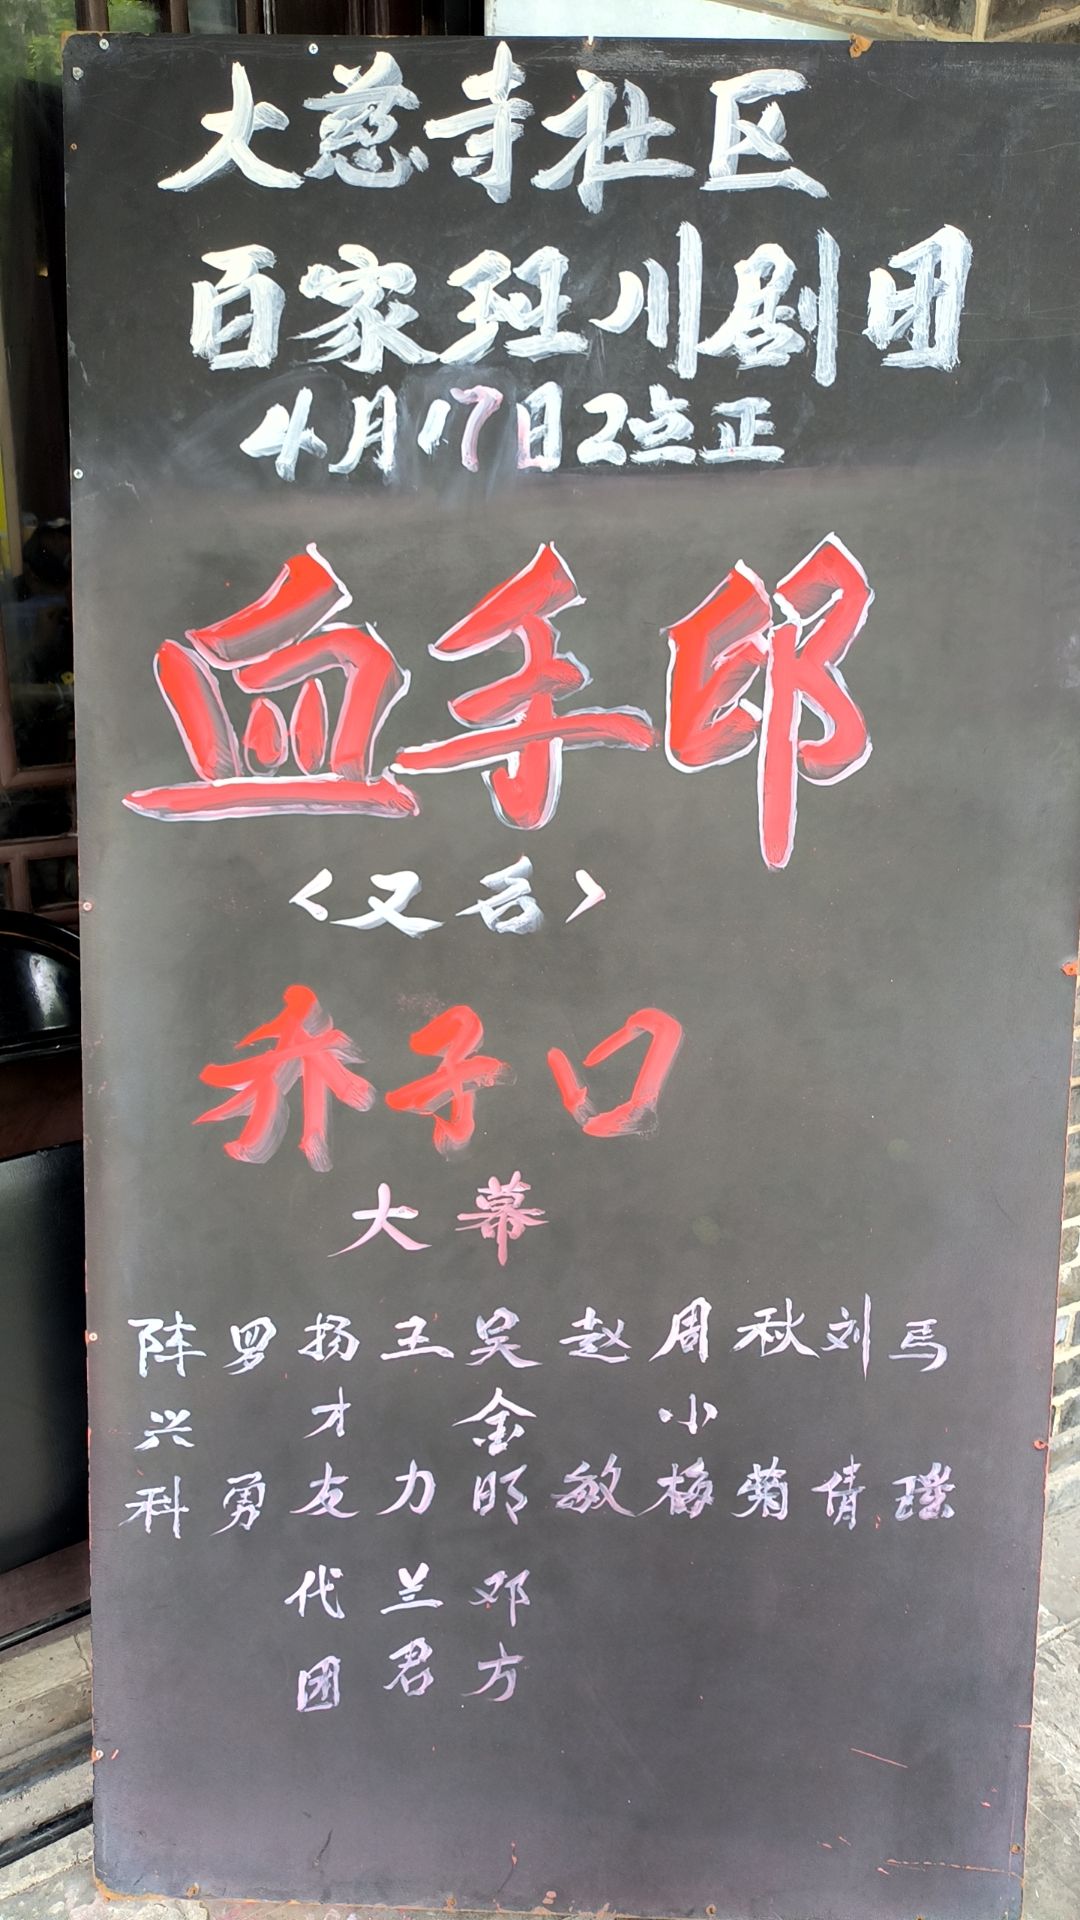 大慈寺社区
百家班川剧团
4月17日2点正
血手印
<又名>
乔子口
大幕
阵兴科 罗勇 扬才友 王力 吴金明 赵敏 周小梅 秋菊 刘倩 马瑾
代团 兰君 邓方